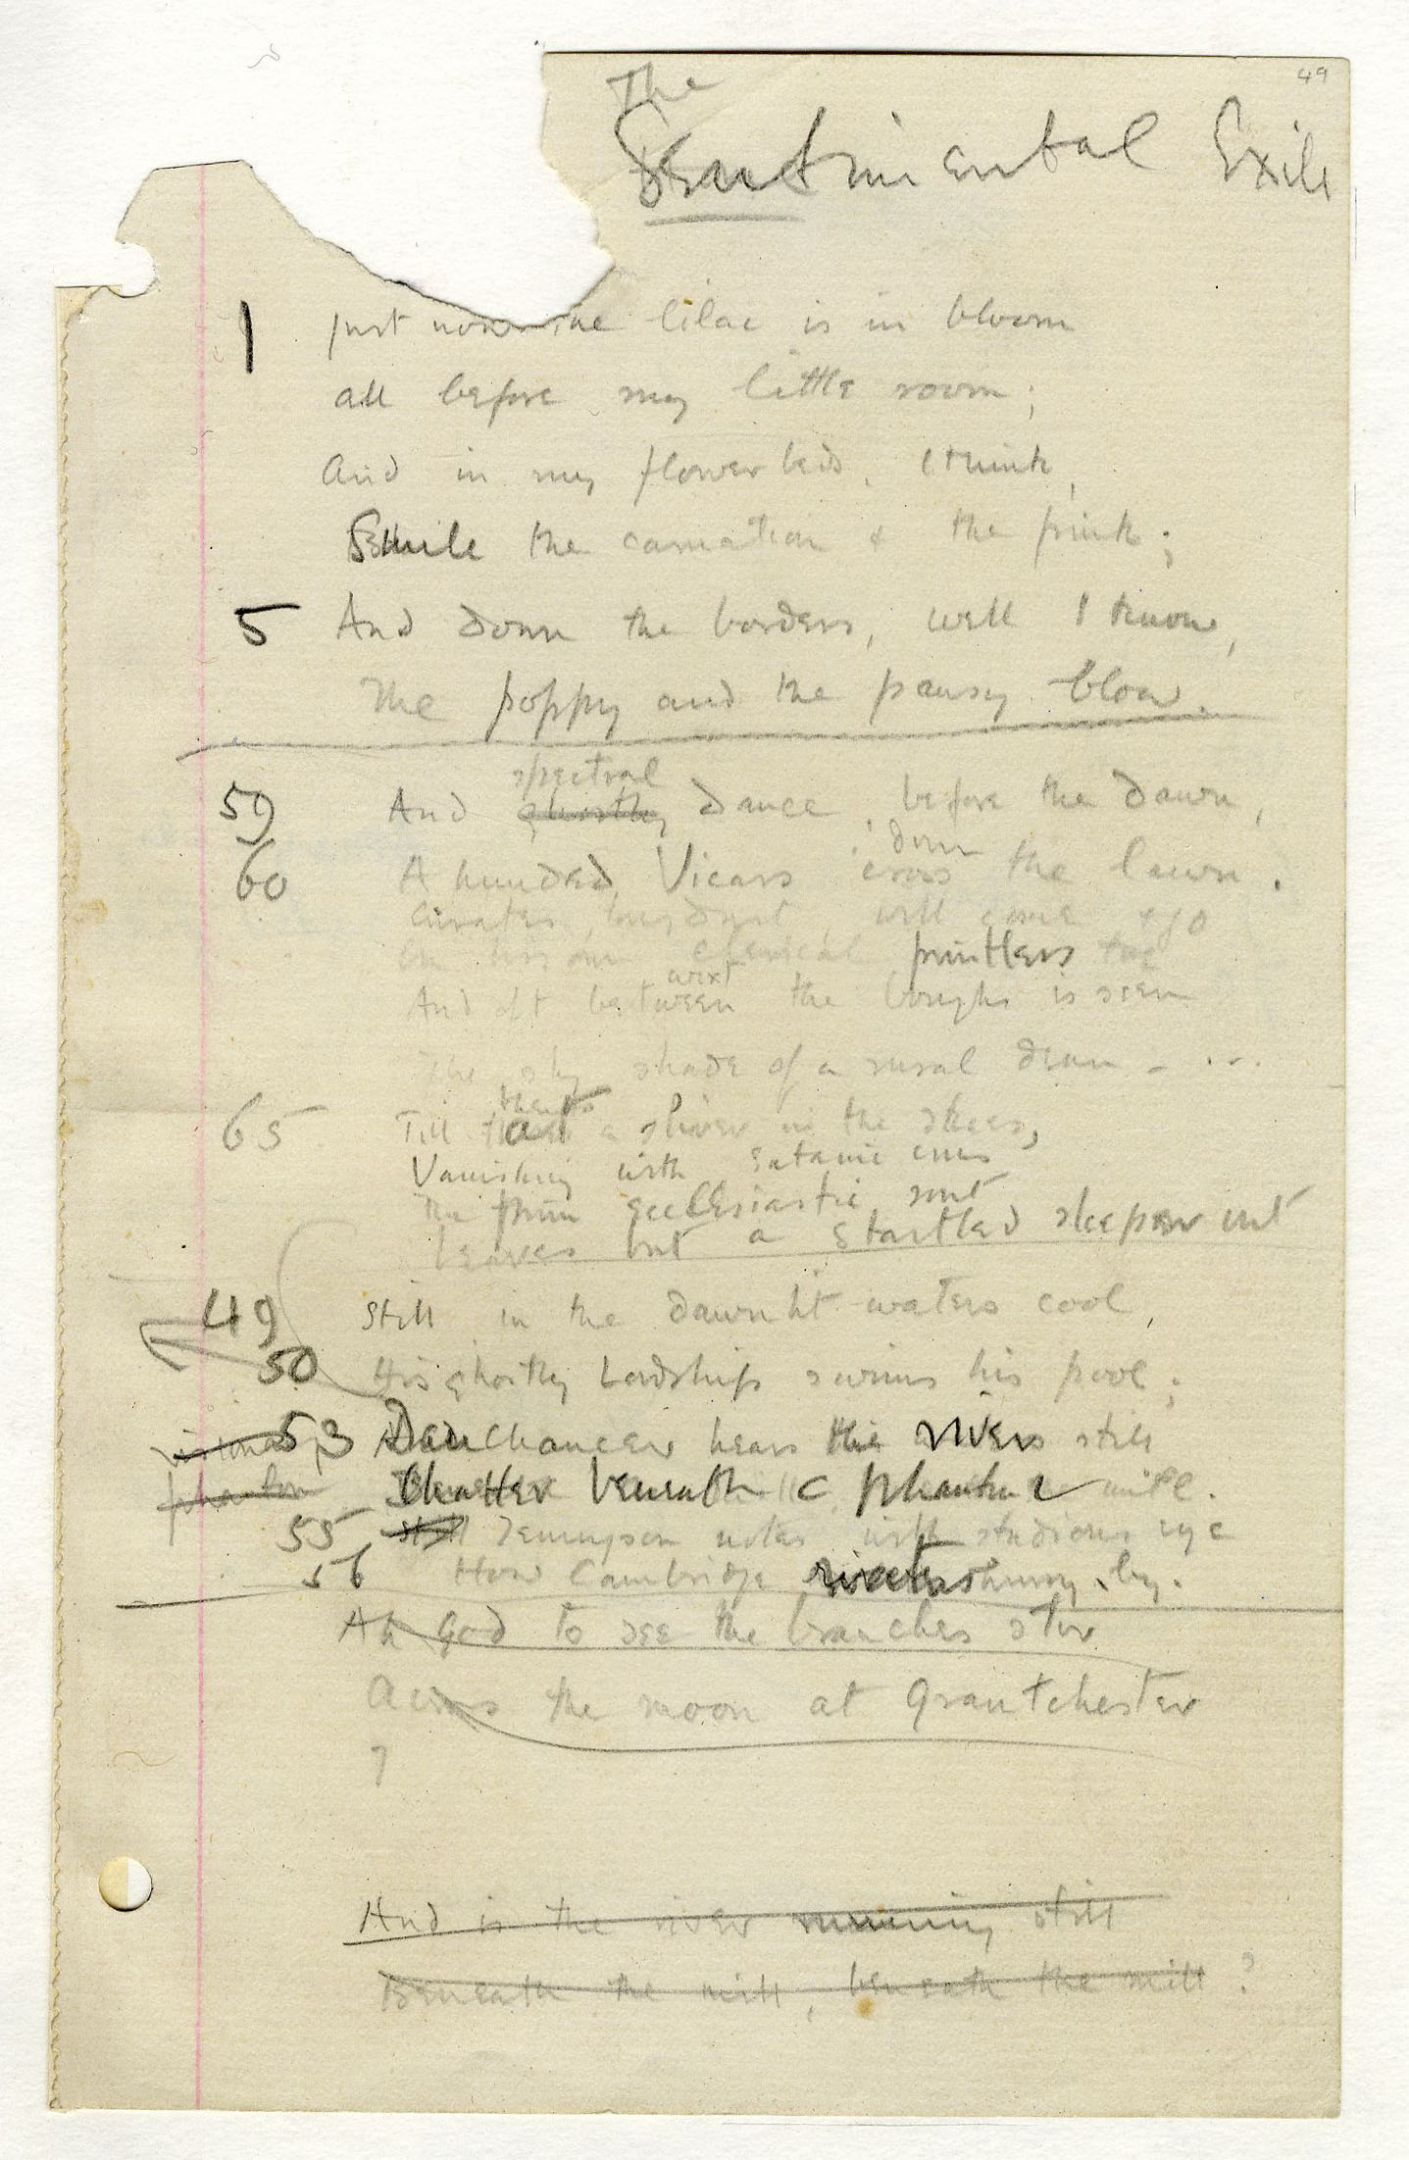 49
The
Sentimental Exile
1 Just now the lilac is in bloom
all before my little room;
And in my flower beds, I think,
Smile the carnation & the pink;
5 And down the borders, well I know,
The poppy and the pansy blow.
spectral
59 And ghostly dance, before the dawn,
down
60 A hundred Vicars cross the lawn.
Curates, long dust, will come & go
On lissom clerical printless toe
wixt
And oft between the boughs is seen
The sly shade of a rural dean - ...
65 Till at a shiver in the skies,
Vanishing with satanic cries
The prim ecclesiastic rout
Leaves but a startled sleeper out
49 Still in the dawnlit waters cool,
50 His ghostly Lordship swims his pool;
53 Dan Chaucer hears his river still
phantom Chatter beneath a phantom mill.
55 Still Tennyson notes with studious eye
56 How Cambridge waters hurry by.
Ah God to see the branches stir
Across the moon at Grantchester
?
And is the river running still
Beneath the mill, beneath the mill?